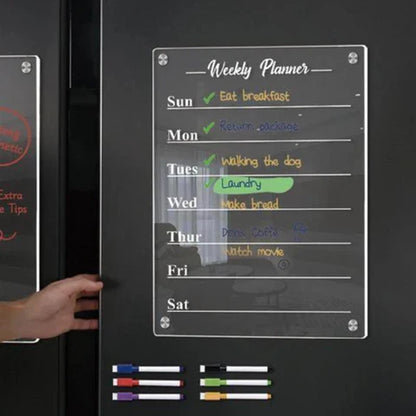 Extra
e Tips
Weekly Planner
Sun Eat breakfast
Mon Return package
Tues Walking the dog
Laundry
Wed Make bread
Thur Drink Coffe
Watch movie
Fri
Sat